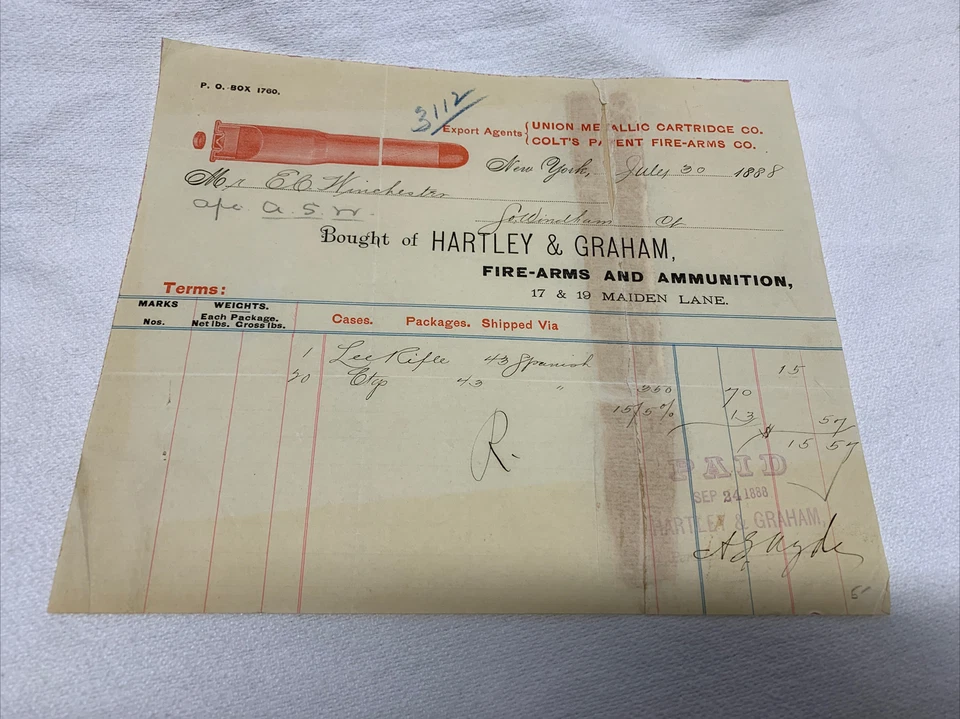 P. O. BOX 1760.
3112
Export Agents { UNION METALLIC CARTRIDGE CO.
COLT'S PATENT FIRE-ARMS CO.
New York, July 30 1888
Mr E C Winchester
a/c A. S. W.
So. Windham Ct
Bought of HARTLEY & GRAHAM,
FIRE-ARMS AND AMMUNITION,
17 & 19 MAIDEN LANE.
Terms:
MARKS WEIGHTS.
Nos. Each Package. Net lbs. Gross lbs. Cases. Packages. Shipped Via
1 Lee Rifle 43 Spanish 15
20 Ctg 43 " 350 70
15/5% 13 57
$ 15 57
R.
PAID
SEP 24 1888
HARTLEY & GRAHAM,